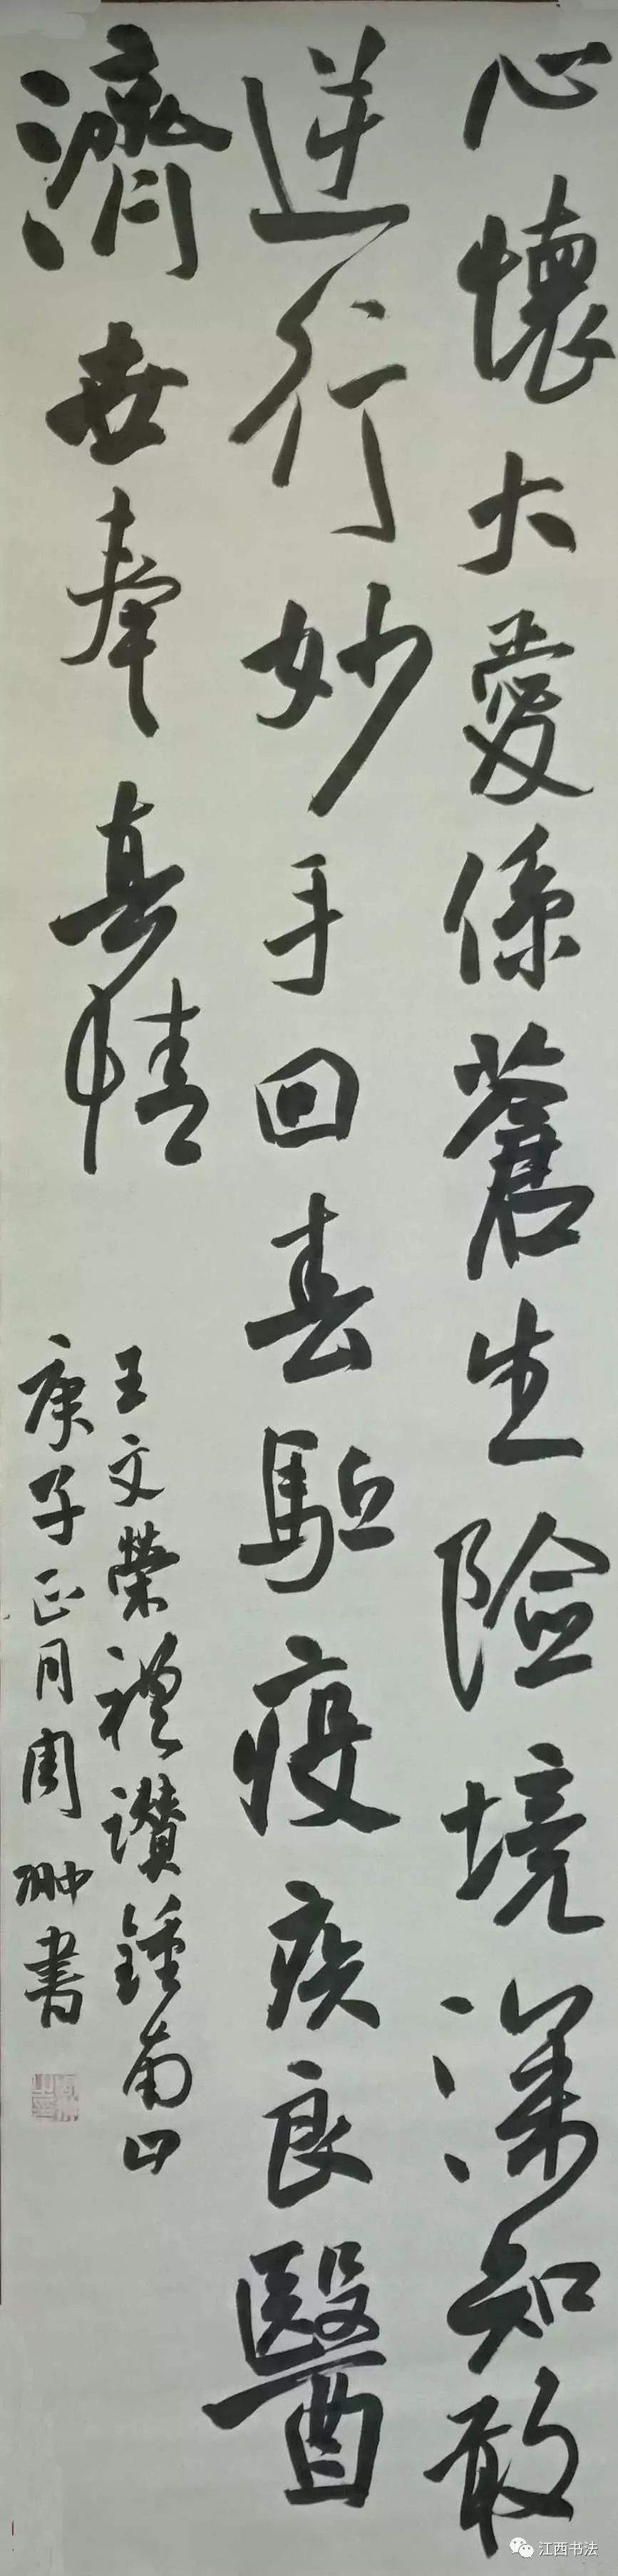 心懷大愛係蒼生險境深知敢
逆行妙手回春駈疫疾良醫
濟世奉真情
王文榮禮讚鍾南山
庚子正月周翀書
江西书法